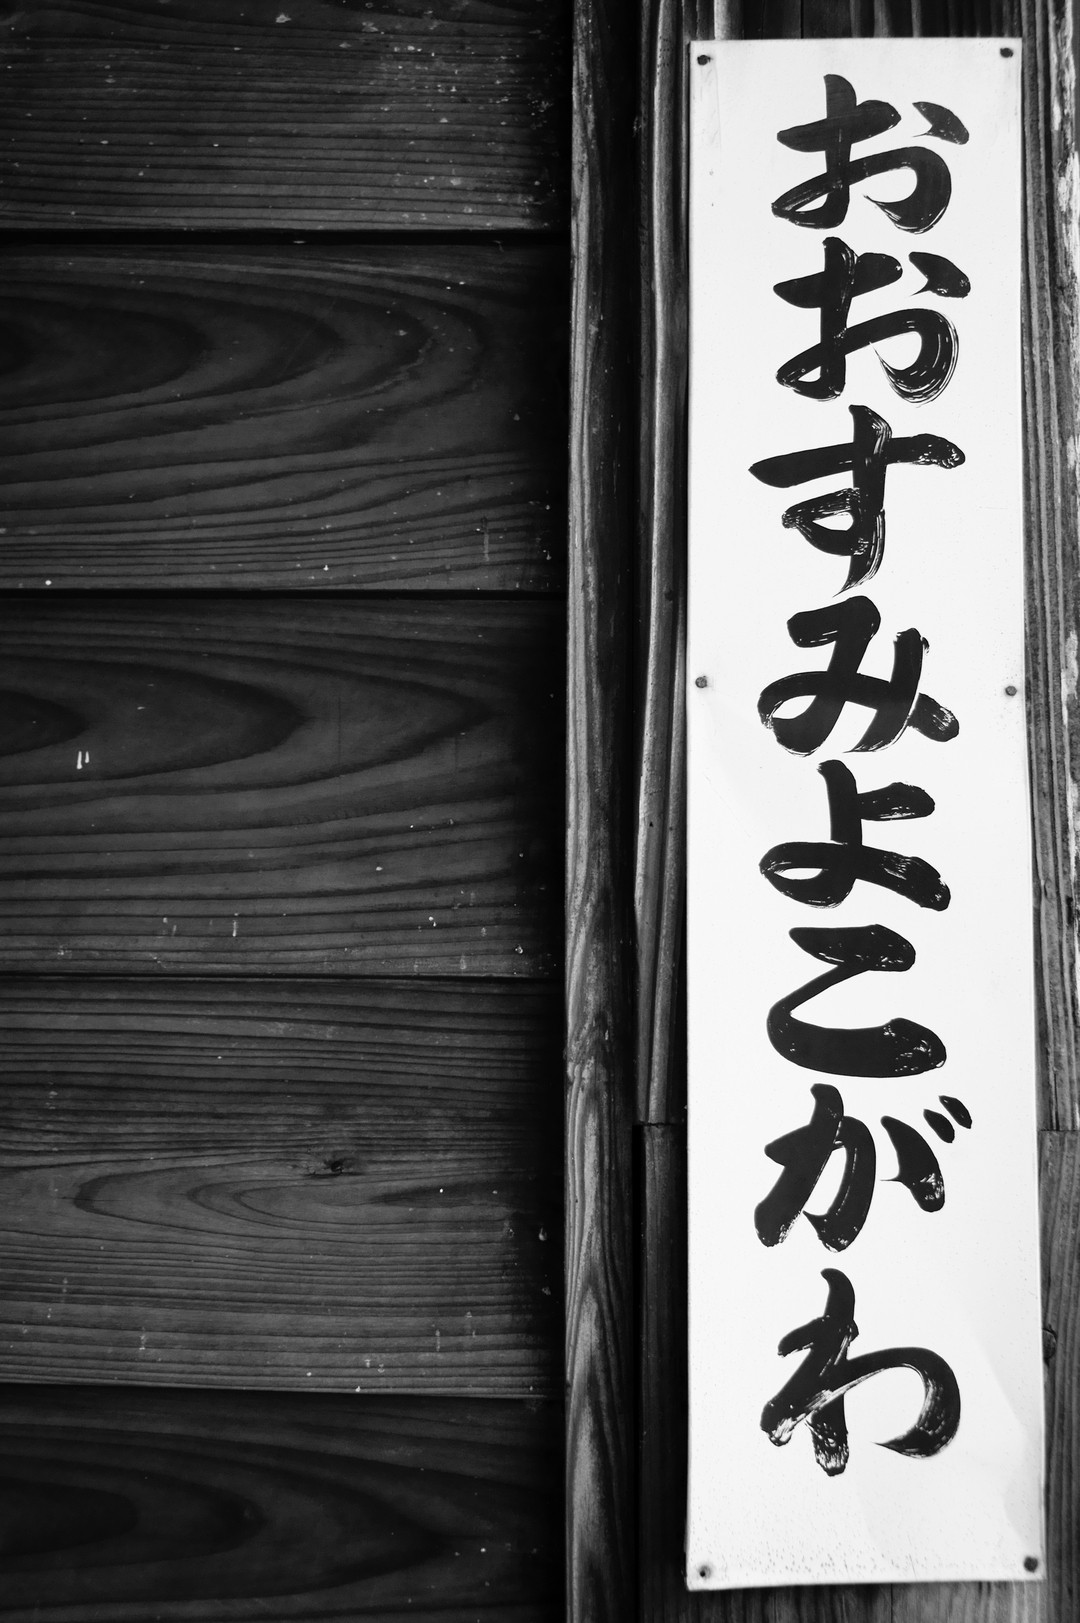 おおすみよこがわ